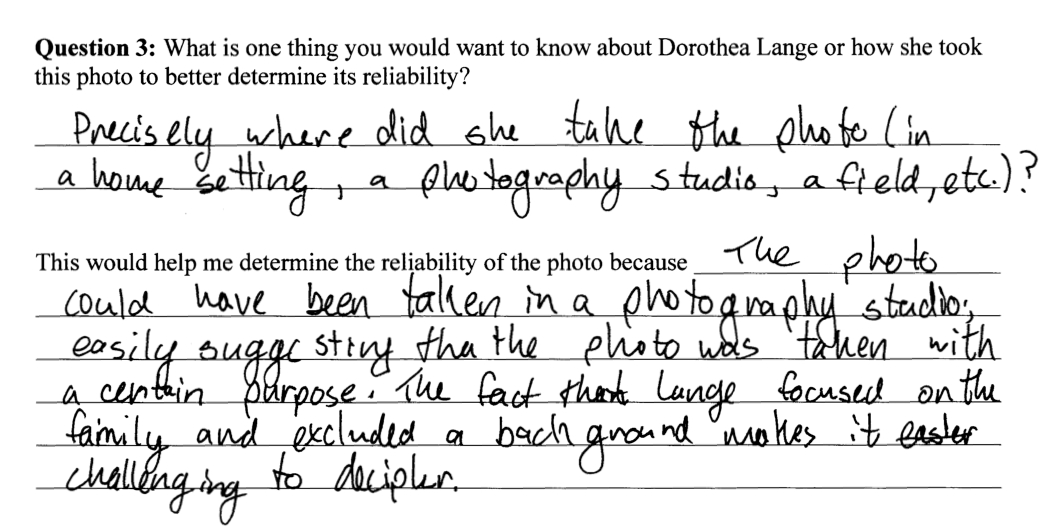 Question 3: What is one thing you would want to know about Dorothea Lange or how she took
this photo to better determine its reliability?
Precisely where did she take the photo (in
a home setting, a photography studio, a field, etc.)?
This would help me determine the reliability of the photo because The photo
could have been taken in a photography studio;
easily suggesting tha the photo was taken with
a certain purpose. The fact that Lange focused on the
family and excluded a background makes it easier
challenging to decipher.